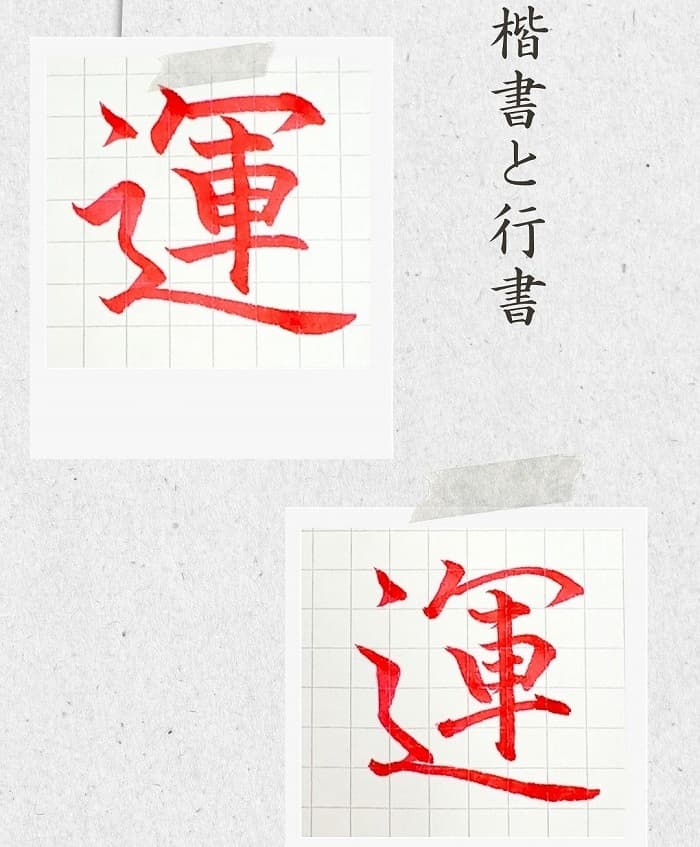 楷書と行書
運
運